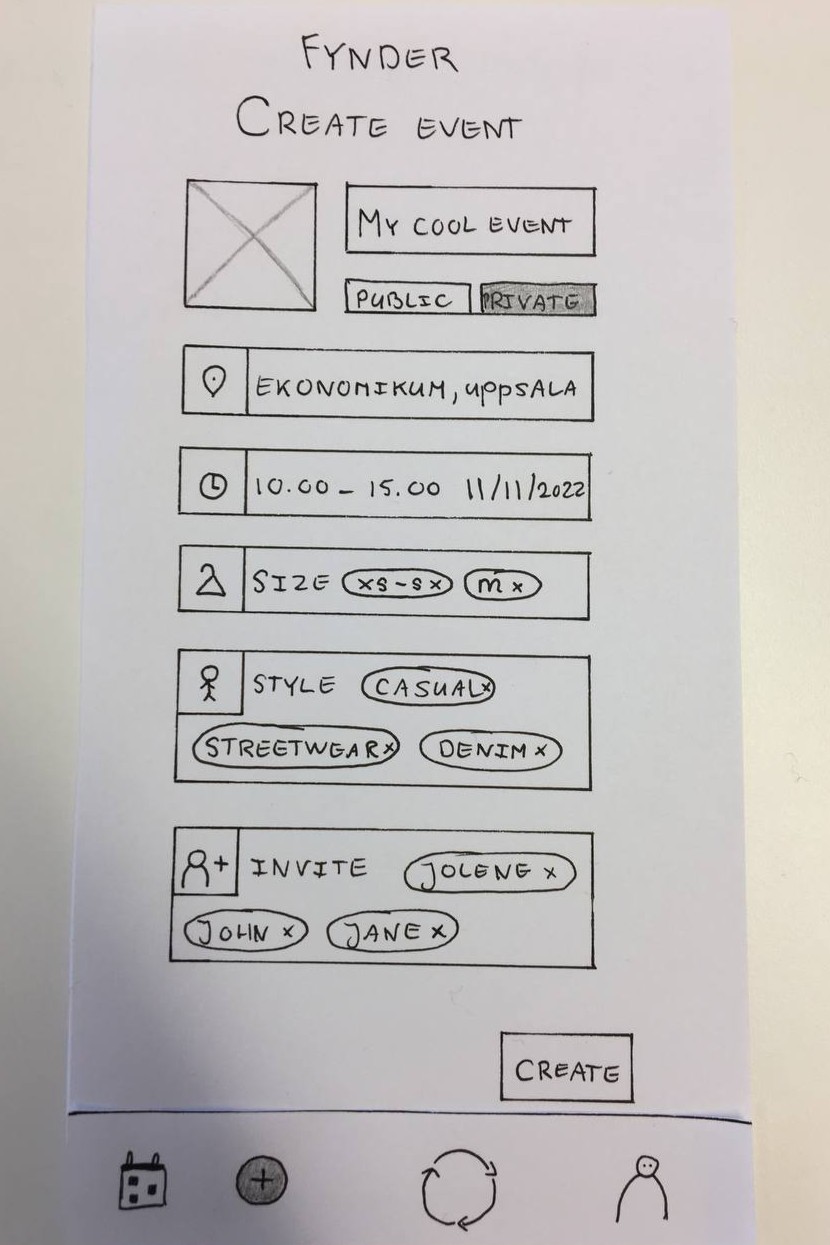 FYNDER
CREATE EVENT
MY COOL EVENT
PUBLIC PRIVATE
EKONOMIKUM, uppSALA
10.00 - 15.00 11/11/2022
SIZE XS-S x M x
STYLE CASUAL x
STREETWEAR x DENIM x
INVITE JOLENE x
JOHN x JANE x
CREATE